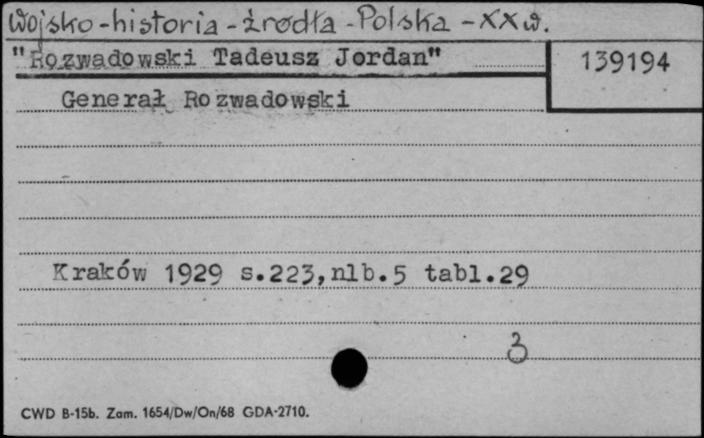 Wojsko-historia-źródła-Polska-XXw.
"Rozwadowski Tadeusz Jordan"
139194
Generał Rozwadowski
Kraków 1929 s.223,nlb.5 tabl.29
3
CWD B-15b. Zam. 1654/Dw/On/68 GDA-2710.